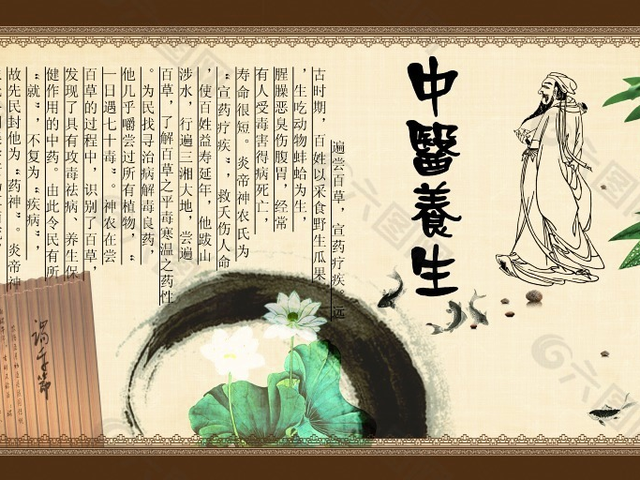 中醫養生
遍尝百草，宣药疗疾 远
古时期，百姓以采食野生瓜果
，生吃动物蚌蛤为生，
腥臊恶臭伤腹胃，经常
有人受毒害得病死亡，
寿命很短。炎帝神农氏为
“宣药疗疾”，救夭伤人命
，使百姓益寿延年，他跋山
涉水，行遍三湘大地，尝遍
百草，了解百草之平毒寒温之药性
。为民找寻治病解毒良药，
他几乎嚼尝过所有植物，“
一日遇七十毒”。神农在尝
百草的过程中，识别了百草，
发现了具有攻毒祛病、养生保
健作用的中药。由此令民有所
“就”，不复为“疾病”，
故先民封他为“药神”。炎帝神
六图网